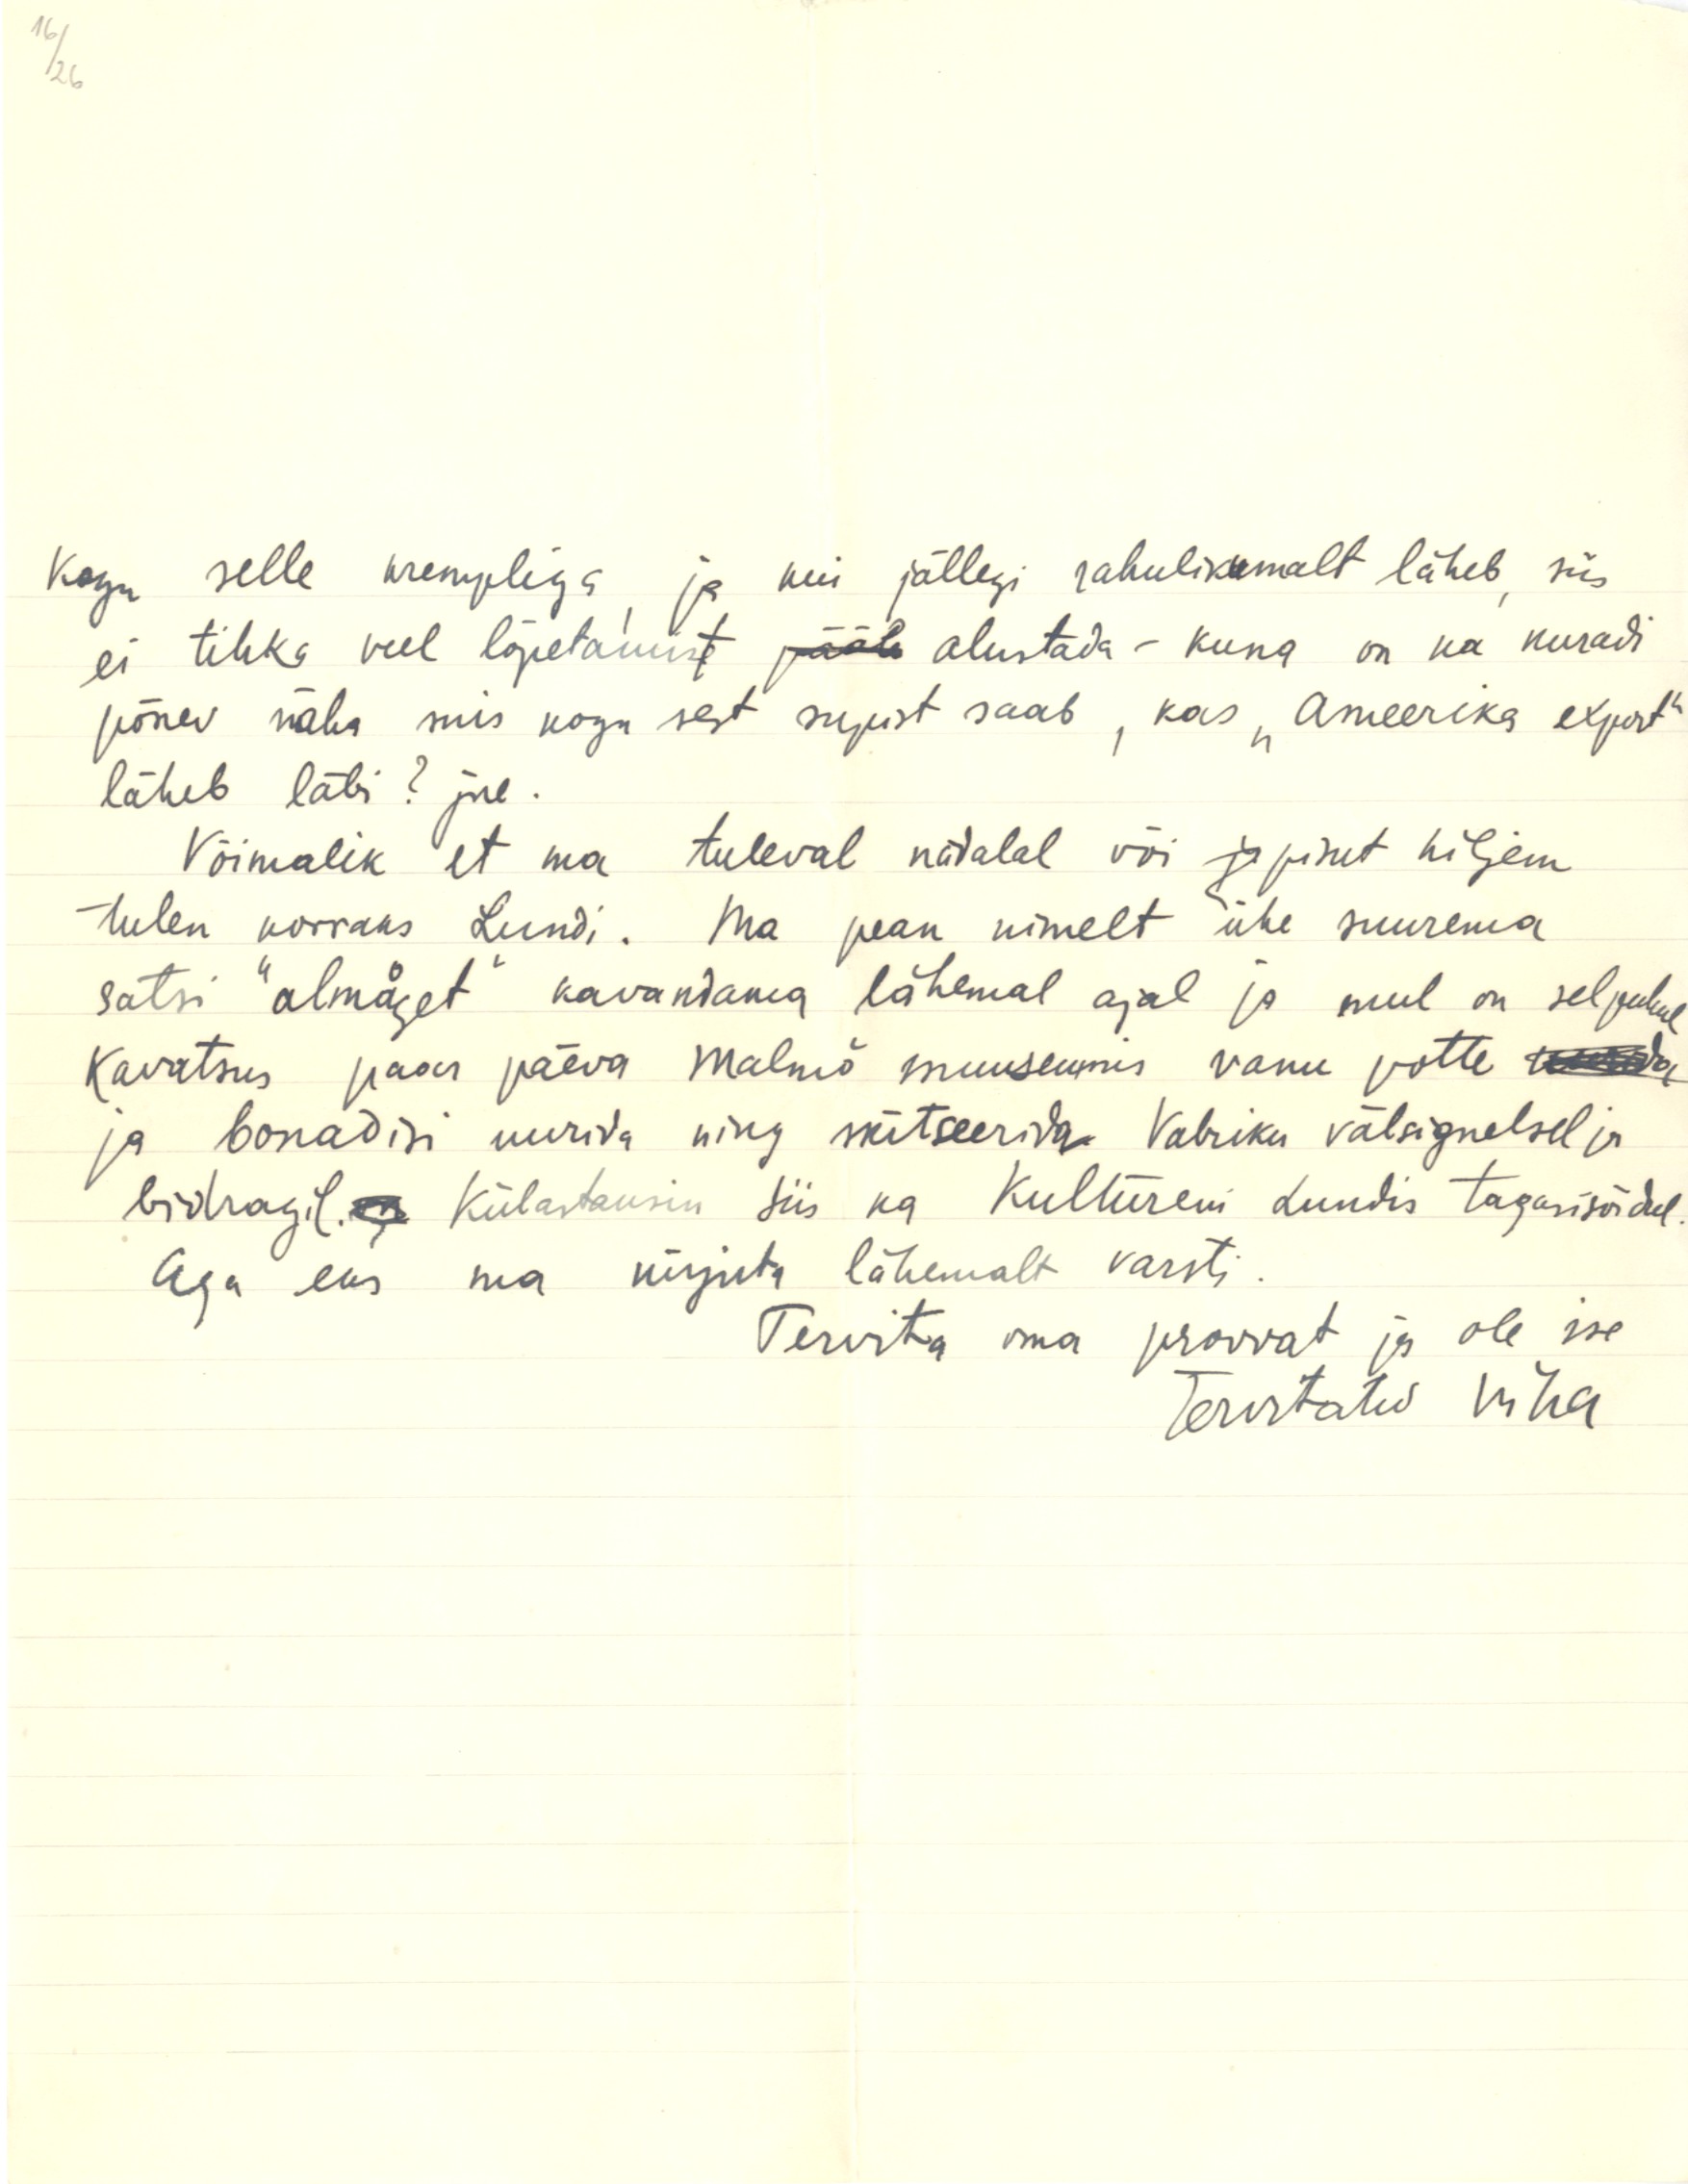 16/26
Kogu selle krempliga, ja kui jällegi rahulikumalt läheb, siis
ei tihka veel lõpetamist pääle alustada – kuna on ka kuradi
põnev näha mis kogu sest supist saab, kas „Ameerika export"
läheb läbi? jne.
Võimalik et ma tuleval nädalal või ja pisut hiljem
tulen korraks Lundi. Ma pean nimelt ühe suurema
satsi "almåget" kavandama lähemal ajal ja mul on sel puhul
Kavatsus paar päeva Malmö muuseumis vanu potte
ja bonadisi uurida ning skitseerida Vabriku välsignelsel ja
bidragil. Külastausin siis ka Kultureni Lundis tagasisõidul.
Aga eks ma kirjuta lähemalt varsti.
Tervita oma prouvat ja ole ise
Tervitatud